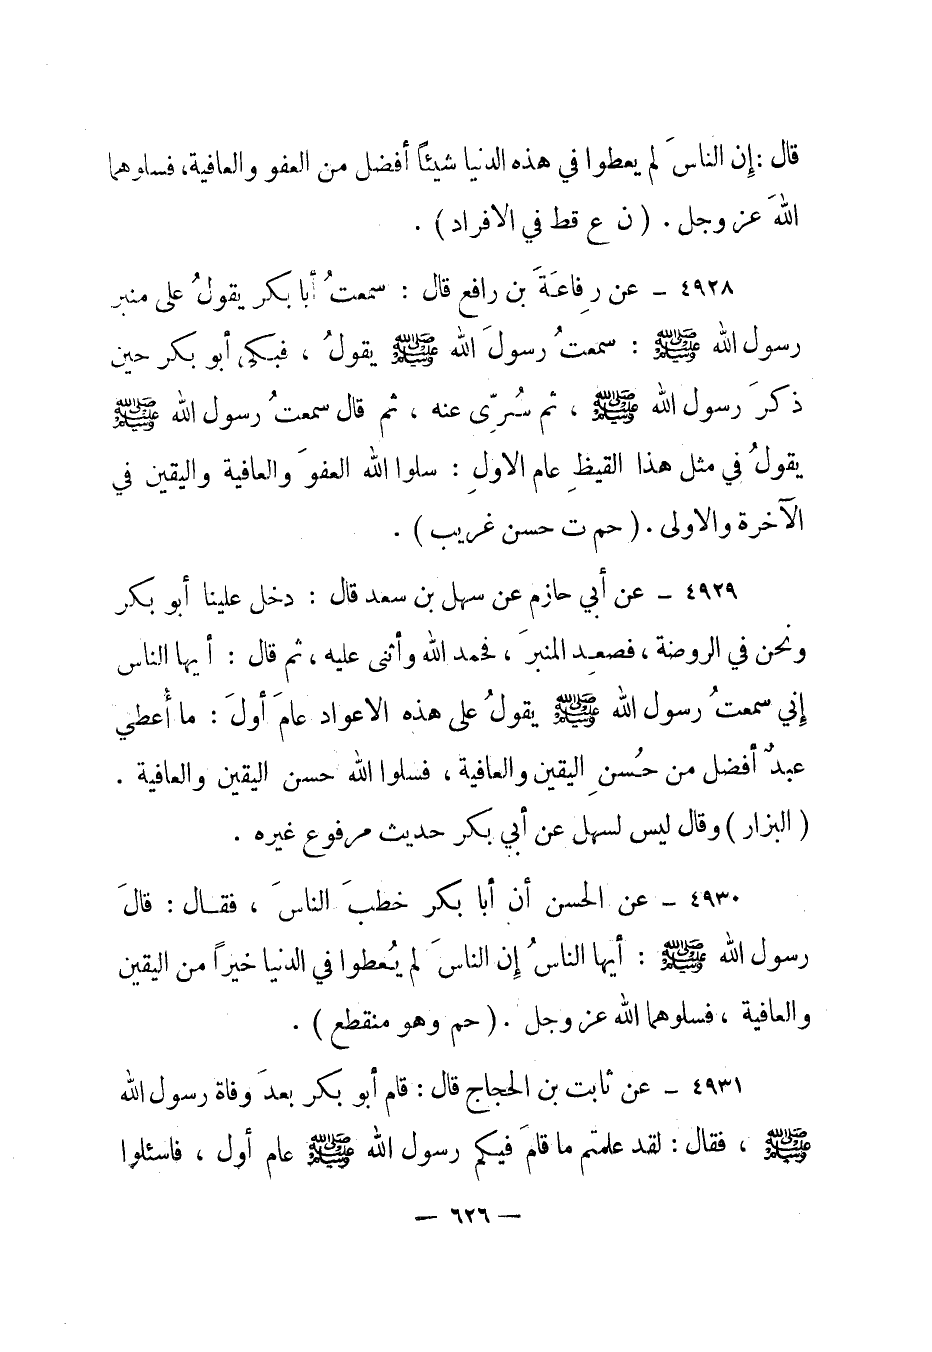 قال : إن الناسَ لم يعطوا في هذه الدنيا شيئاً أفضل من العفو والعافية، فسلوهما
اللهَ عز وجل . ( ن ع قط في الافراد ) .
٤٩٢٨ – عن رِفاعَةَ بن رافع قال : سمعتُ أبا بكر يقولُ على منبر
رسول الله ﷺ : سمعتُ رسولَ الله ﷺ يقولُ ، فبكى أبو بكر حين
ذكرَ رسول الله ﷺ ، ثم سُرِّى عنه ، ثم قال سمعتُ رسول الله ﷺ
يقولُ في مثل هذا القيظِ عام الاولِ : سلوا الله العفوَ والعافية واليقين في
الآخرة والاولى . ( حم ت حسن غريب ) .
٤٩٢٩ – عن أبي حازم عن سهل بن سعد قال : دخل علينا أبو بكر
ونحن في الروضة ، فصعِد المنبرَ ، فحمد الله وأثنى عليه ، ثم قال : أيها الناس
إني سمعتُ رسول الله ﷺ يقولُ على هذه الاعواد عامَ أولَ : ما أُعطي
عبدٌ أفضل من حُسنِ اليقين والعافية ، فسلوا الله حسن اليقين والعافية .
( البزار ) وقال ليس لسهل عن أبي بكر حديث مرفوع غيره .
٤٩٣٠ – عن الحسن أن أبا بكر خطبَ الناسَ ، فقال : قالَ
رسول الله ﷺ : أيها الناسُ إن الناسَ لم يُعطوا في الدنيا خيراً من اليقين
والعافية ، فسلوهما الله عز وجل . ( حم وهو منقطع ) .
٤٩٣١ – عن ثابت بن الحجاج قال : قام أبو بكر بعدَ وفاة رسول الله
ﷺ ، فقال : لقد علمتم ما قامَ فيكم رسول الله ﷺ عام أول ، فاسئلوا
– ٦٢٦ –